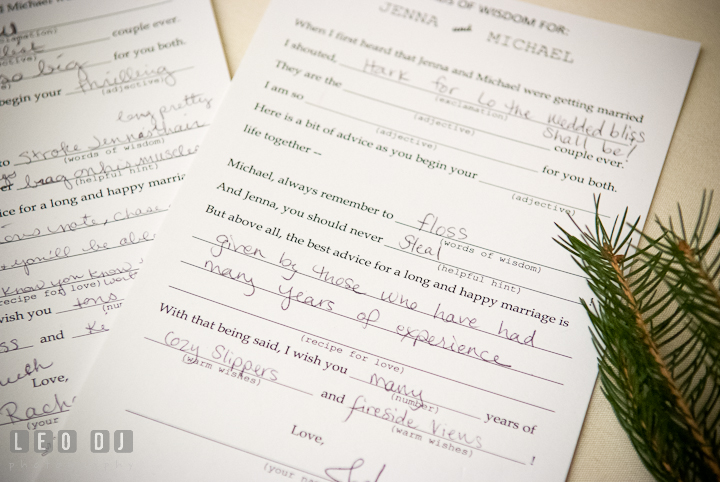 couple ever.
so big for you both.
begin your thrilling
(adjective)
long pretty
to stroke Jenna's hair
(words of wisdom)
brag on his muscles
(helpful hint)
ice for a long and happy marria
know you know
(recipe for love)
wish you tons
and
Love,
Rach
(your
OF WISDOM FOR:
JENNA and MICHAEL
When I first heard that Jenna and Michael were getting married
I shouted, Hark for Lo the wedded bliss
(exclamation) shall be!
They are the couple ever.
(adjective)
I am so for you both.
(adjective)
Here is a bit of advice as you begin your
(adjective)
life together --
Michael, always remember to floss
(words of wisdom)
And Jenna, you should never steal
(helpful hint)
But above all, the best advice for a long and happy marriage is
given by those who have had
many years of experience
(recipe for love)
With that being said, I wish you many years of
(number)
cozy slippers and fireside views !
(warm wishes) (warm wishes)
Love,
(your na
LEO DJ